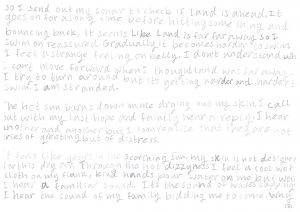 so I send out my sonar to check if land is ahead. It
goes on for a long time before hitting something and
bouncing back. It seems like land is far faraway so I
swim on reassured. Gradually it becomes harder to swim
I feel a strange feeling on belly. I don't understand why
I can't move forward when I thought land was far away.
I try to turn around but it's getting harder and harder to
swim. I am stranded.
The hot sun burns down on me drying out my skin. I call
out with my last hope and faintly hear a reply. I hear
another and another but I soon realise that they are not
cries of greeting but of distress.
It feels like years in the scorching sun my skin is not designed
for this dry on. Through the hot dizzyness I feel a cool wet
cloth on my flank, kind hands pour water on me but well
I hear a familiar sound. It's the sound of waves
I hear the sound of my family bidding me to come